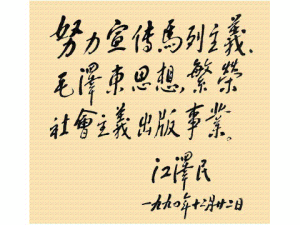 努力宣傳馬列主義、
毛澤東思想，繁榮
社會主義出版事業。
江澤民
一九九〇年十二月廿二日